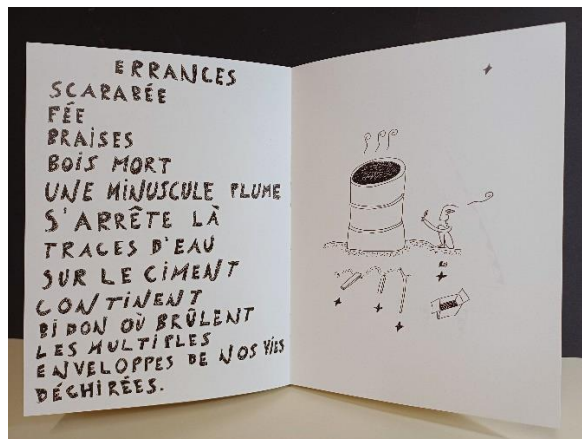 ERRANCES
SCARABÉE
FÉE
BRAISES
BOIS MORT
UNE MINUSCULE PLUME
S'ARRÊTE LÀ
TRACES D'EAU
SUR LE CIMENT
CONTINENT
BIDON OÙ BRÛLENT
LES MULTIPLES
ENVELOPPES DE NOS VIES
DÉCHIRÉES.